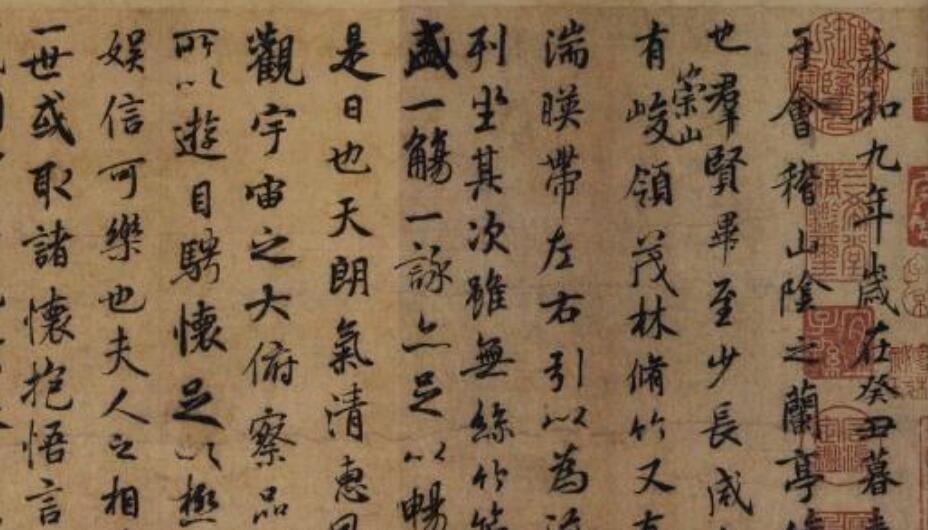 永和九年歲在癸丑暮
于會稽山陰之蘭亭
也羣賢畢至少長咸
有崇山峻領茂林脩竹又有
湍暎帶左右引以為
列坐其次雖無絲竹
盛一觴一詠亦足以暢
是日也天朗氣清惠風
觀宇宙之大俯察品
所以遊目騁懷足以極
娛信可樂也夫人之相
一世或取諸懷抱悟言